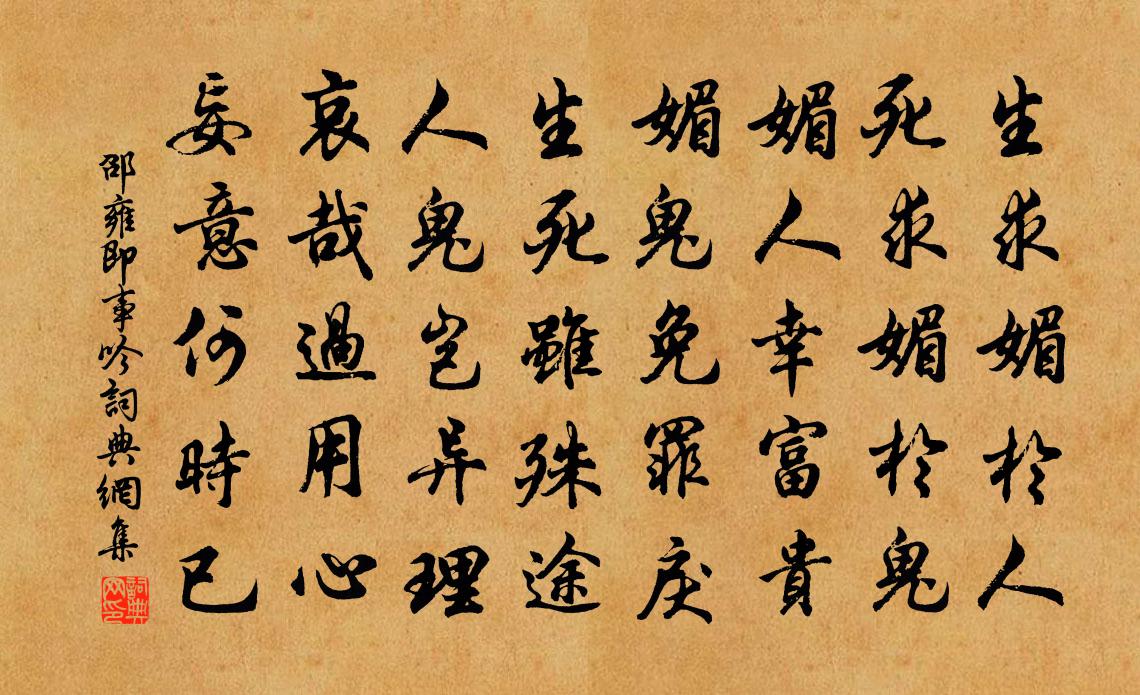 生求媚於人
死求媚於鬼
媚人幸富貴
媚鬼免罪戾
生死雖殊途
人鬼豈异理
哀哉過用心
妄意何時已
邵雍即事吟詞典網集
詞典网印